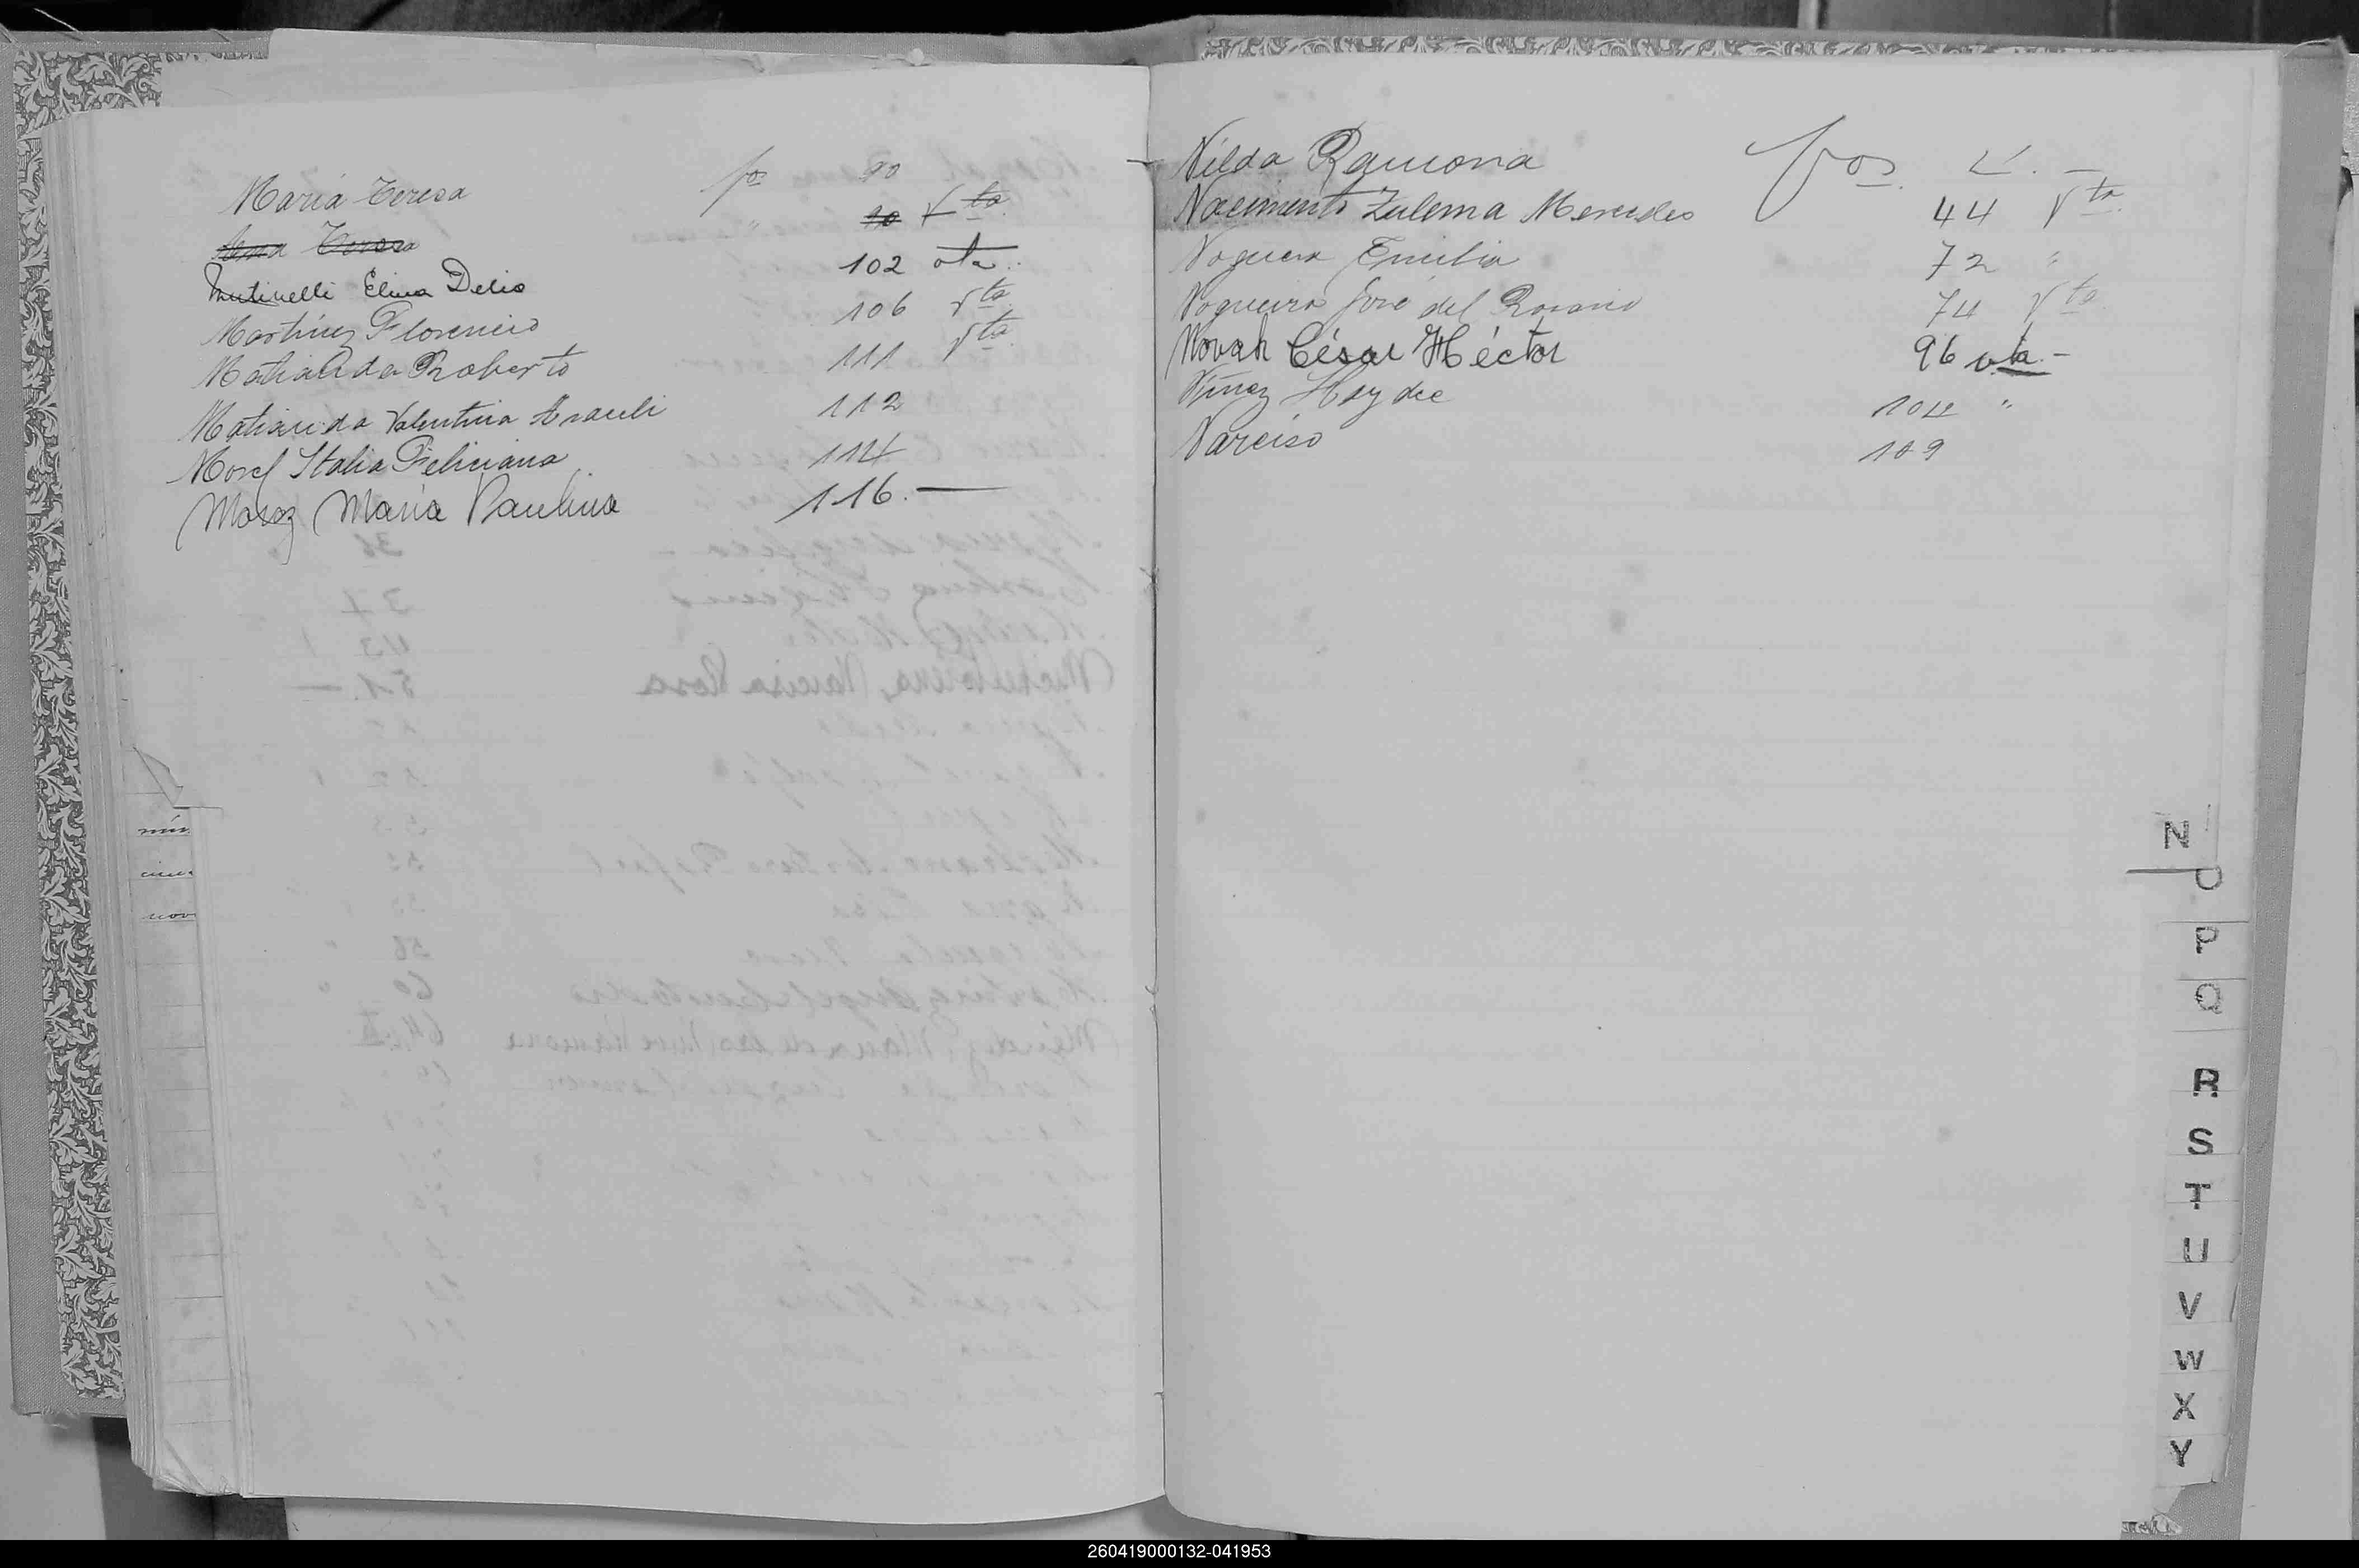 María Teresa fo 90
Teresa " 90 Vta
Mutinelli Elina Delio 102 vta.
Martínez Florencio 106 Vta
Matianda Roberto 111 Vta
Matianda Valentina Araceli 112
Morel Italia Feliciana 114
María Paulina 116.—
Nilda Ramona fos.
Nacimento Zulema Mercedes 44 Vta
Noguera Emilia 72 "
Nogueira José del Rosario 74 Vta
Novak César Héctor 96 vta.-
Núnez Haydee 104 "
Narciso 109
mín
nov
N
O
P
Q
R
S
T
U
V
W
X
Y
260419000132-041953